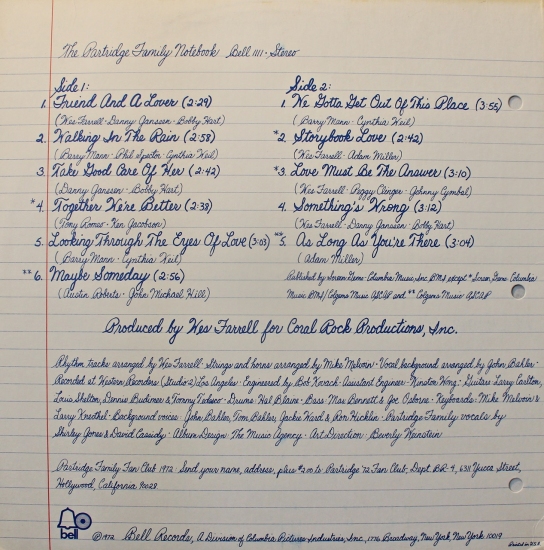 The Partridge Family Notebook Bell 1111 · Stereo
Side 1:
1. Friend And A Lover (2:29)
(Wes Farrell · Danny Janssen · Bobby Hart)
2. Walking In The Rain (2:58)
(Barry Mann · Phil Spector · Cynthia Weil)
3. Take Good Care Of Her (2:42)
(Danny Janssen · Bobby Hart)
*4. Together We're Better (2:38)
(Tony Romeo · Ken Jacobson)
5. Looking Through The Eyes Of Love (3:03)
(Barry Mann · Cynthia Weil)
**6. Maybe Someday (2:56)
(Austin Roberts · John Michael Hill)
Side 2:
1. We Gotta Get Out Of This Place (3:55)
(Barry Mann · Cynthia Weil)
*2. Storybook Love (2:42)
(Wes Farrell · Adam Miller)
*3. Love Must Be The Answer (3:10)
(Wes Farrell · Peggy Clinger · Johnny Cymbal)
4. Something's Wrong (3:12)
(Wes Farrell · Danny Janssen · Bobby Hart)
**5. As Long As You're There (3:04)
(Adam Miller)
Published by Screen Gems-Columbia Music, Inc. BMI, except *Screen Gems-Columbia
Music BMI/Colgems Music ASCAP and ** Colgems Music ASCAP
Produced by Wes Farrell for Coral Rock Productions, Inc.
Rhythm tracks arranged by Wes Farrell · Strings and horns arranged by Mike Melvoin · Vocal background arranged by John Bahler ·
Recorded at Western Recorders (Studio 2) Los Angeles · Engineered by Bob Kovack · Assistant Engineer · Winston Wong · Guitars Larry Carlton,
Louis Shelton, Dennis Budimer & Tommy Tedesco · Drums · Hal Blaine · Bass · Max Bennett & Joe Osborne · Keyboards · Mike Melvoin &
Larry Knechtel · Background voices · John Bahler, Tom Bahler, Jackie Ward & Ron Hicklin · Partridge Family vocals by
Shirley Jones & David Cassidy · Album Design · The Music Agency · Art Direction · Beverly Weinstein
Partridge Family Fan Club 1972 · Send your name, address, plus $2.00 to Partridge '72 Fan Club · Dept. BR-4, 6311 Yucca Street,
Hollywood, California 90028.
bell
©1972 Bell Records, A Division of Columbia Pictures Industries, Inc., 1776 Broadway, New York, New York 10019
Printed in U.S.A.